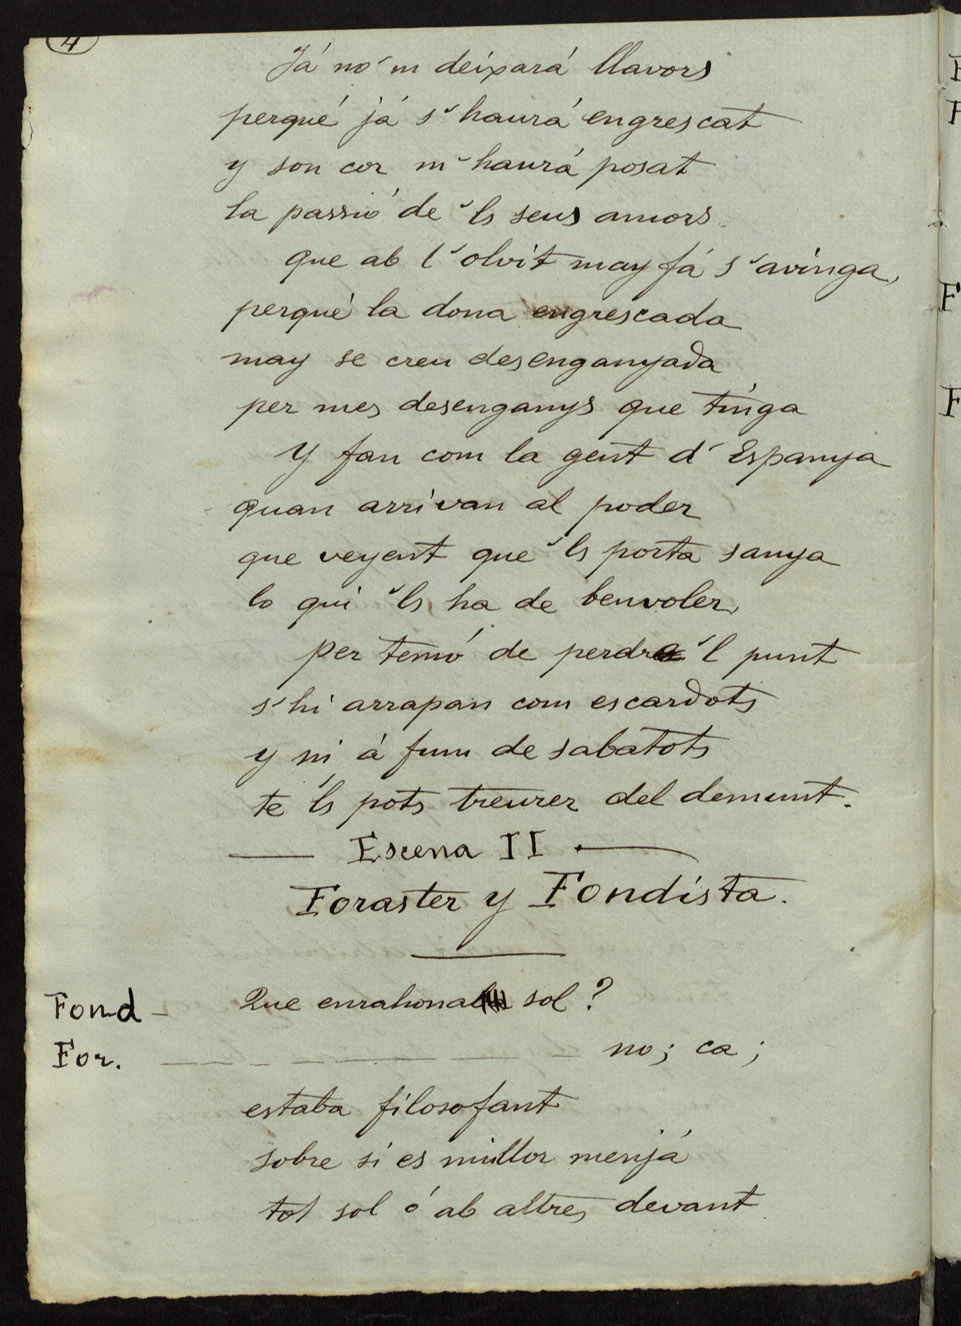 4
Já no'm deixará llavors
perqué já s'haurá engrescat
y son cor m'haurá posat
la passió de 'ls seus amors.
que ab l'olvit may fá s'avinga,
perqué la dona engrescada
may se creu desenganyada
per mes desenganys que tinga
Y fan com la gent d'Espanya
quan arrivan al poder
que veyent que 'ls porta sanya
lo qui 'ls ha de benvoler,
per temó de perdre 'l punt
s'hi arrapan com escardots
y ni á fum de sabatots
te 'ls pots treurer del demunt.
— Escena II —
Foraster y Fondista.
Fond — Que enrahona sol?
For. — — — — — no; ca;
estaba filosofant
sobre si es millor menjá
tot sol ó ab altres devant